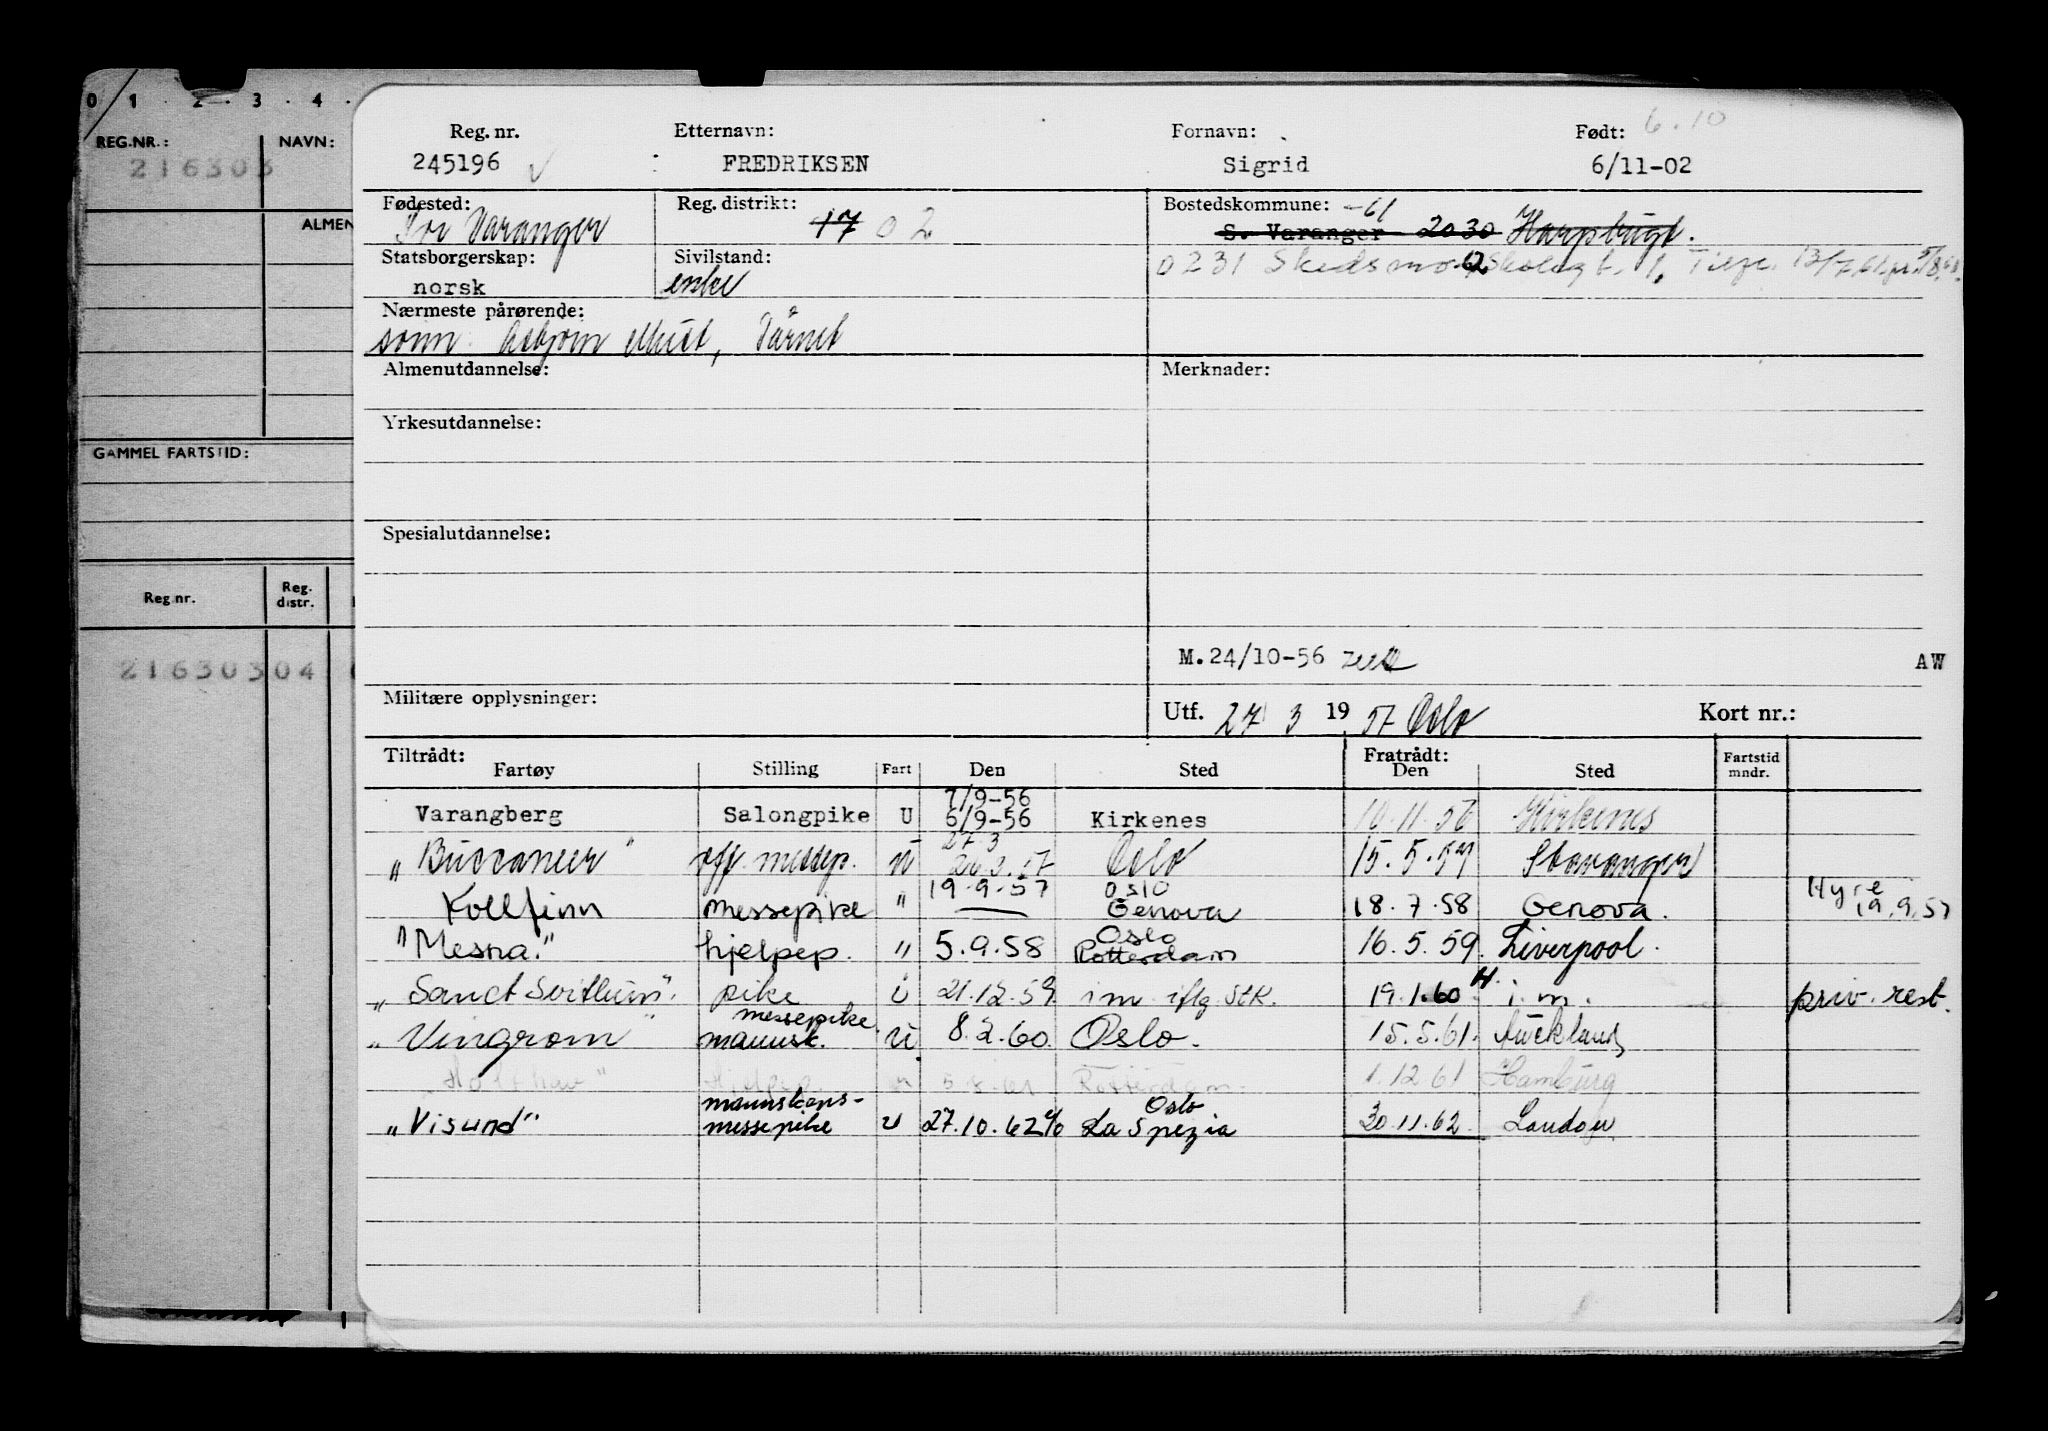 0 1 · 2 · 3 · 4 ·
REG.NR.: NAVN:
216303
ALMEN
GAMMEL FARTSTID:
Reg.nr. Reg. distr.
21630304
6.10
Reg. nr. Etternavn: Fornavn: Født:
245196 FREDRIKSEN Sigrid 6/11-02
Fødested: Reg. distrikt: Bostedskommune: -61
Sør Varanger 17 02 S. Varanger 2030 Harpbugt.
Statsborgerskap: Sivilstand: 0231 Skedsmo
norsk enke
Nærmeste pårørende:
sønn Asbjørn
Almenutdannelse: Merknader:
Yrkesutdannelse:
Spesialutdannelse:
M.24/10-56 AW
Militære opplysninger:
Utf. 27 3 19 57 Oslo Kort nr.:
Tiltrådt: Fratrådt:
Fartøy Stilling Fart Den Sted Den Sted Fartstid mndr.
7/9-56
Varangberg Salongpike U 6/9-56 Kirkenes 10.11.56 Kirkenes
27.3
"Buccaneer" off. messep. u 26.3.57 Oslo 15.5.57 Stavanger
19.9.57 Oslo Hyre
Kollfinn messepike " — Genova 18.7.58 Genova. 19.9.57
Oslo
"Mesna." hjelpep. " 5.9.58 Rotterdam 16.5.59 Liverpool.
H.
"Sanct Svithun". pike u 21.12.59 i m iflg StK. 19.1.60 i.m. priv. rest.
messepike
"Vingrom" mannsk. u 8.2.60. Oslo. 15.5.61. Auckland
Hjelpep. Rotterdam. 1.12 61 Hamburg
mannskaps- Oslo
"Visund" messepike u 27.10.62 La Spezia 30.11.62. London